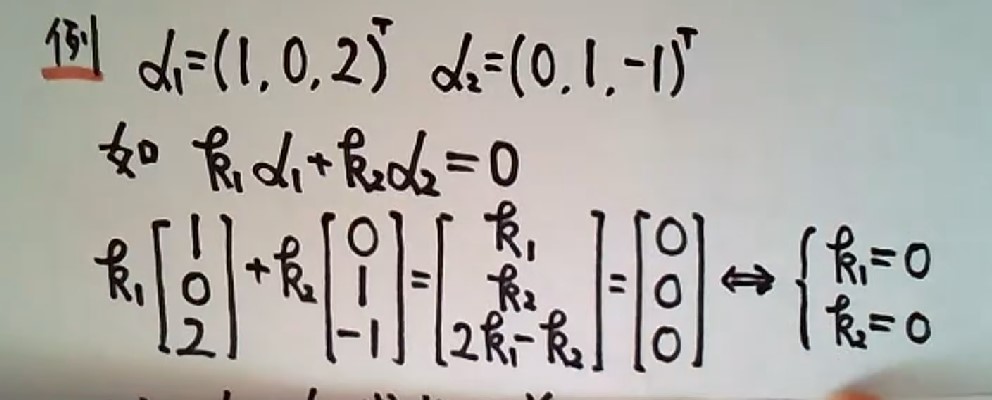 例 α₁=(1,0,2)ᵀ α₂=(0,1,-1)ᵀ
如 k₁α₁+k₂α₂=0
k₁[1 0 2]+k₂[0 1 -1]=[k₁ k₂ 2k₁-k₂]=[0 0 0]⇔{k₁=0 k₂=0